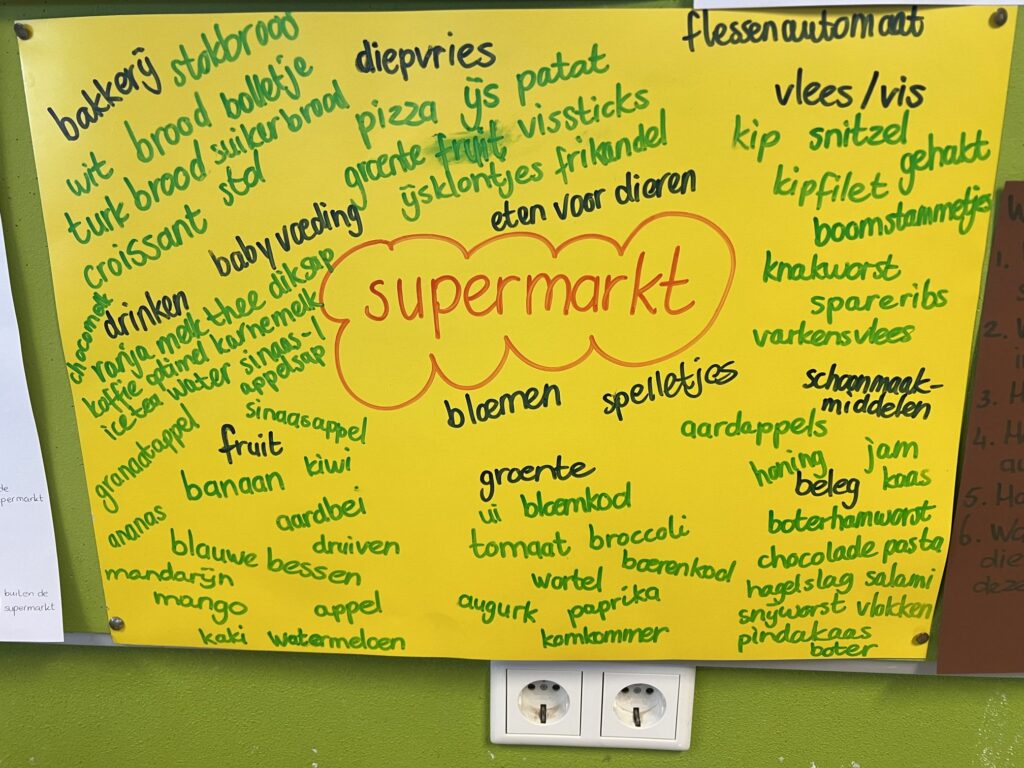 bakkerij stokbrood
wit brood bolletje
turk brood suikerbrood
croissant stol
diepvries
pizza ijs patat
groente fruit vissticks
ijsklontjes frikandel
flessenautomaat
vlees/vis
kip snitzel
kipfilet gehakt
boomstammetjes
knakworst
spareribs
varkensvlees
baby voeding
eten voor dieren
supermarkt
drinken
chocomel
ranja melk thee diksap
koffie optimel karnemelk
icetea water sinas-1
appelsap
bloemen
spelletjes
schoonmaak-
middelen
fruit
granaatappel
sinaasappel
banaan kiwi
ananas
aardbei
blauwe bessen
druiven
mandarijn
mango
appel
kaki watermeloen
groente
aardappels
ui bloemkool
tomaat broccoli
wortel
boerenkool
augurk paprika
komkommer
beleg
honing jam
kaas
boterhamworst
chocolade pasta
hagelslag salami
snijworst vlokken
pindakaas
boter
de
permarkt
buiten de
supermarkt
1.
2.
3.
4.
5.
6.
die
deze